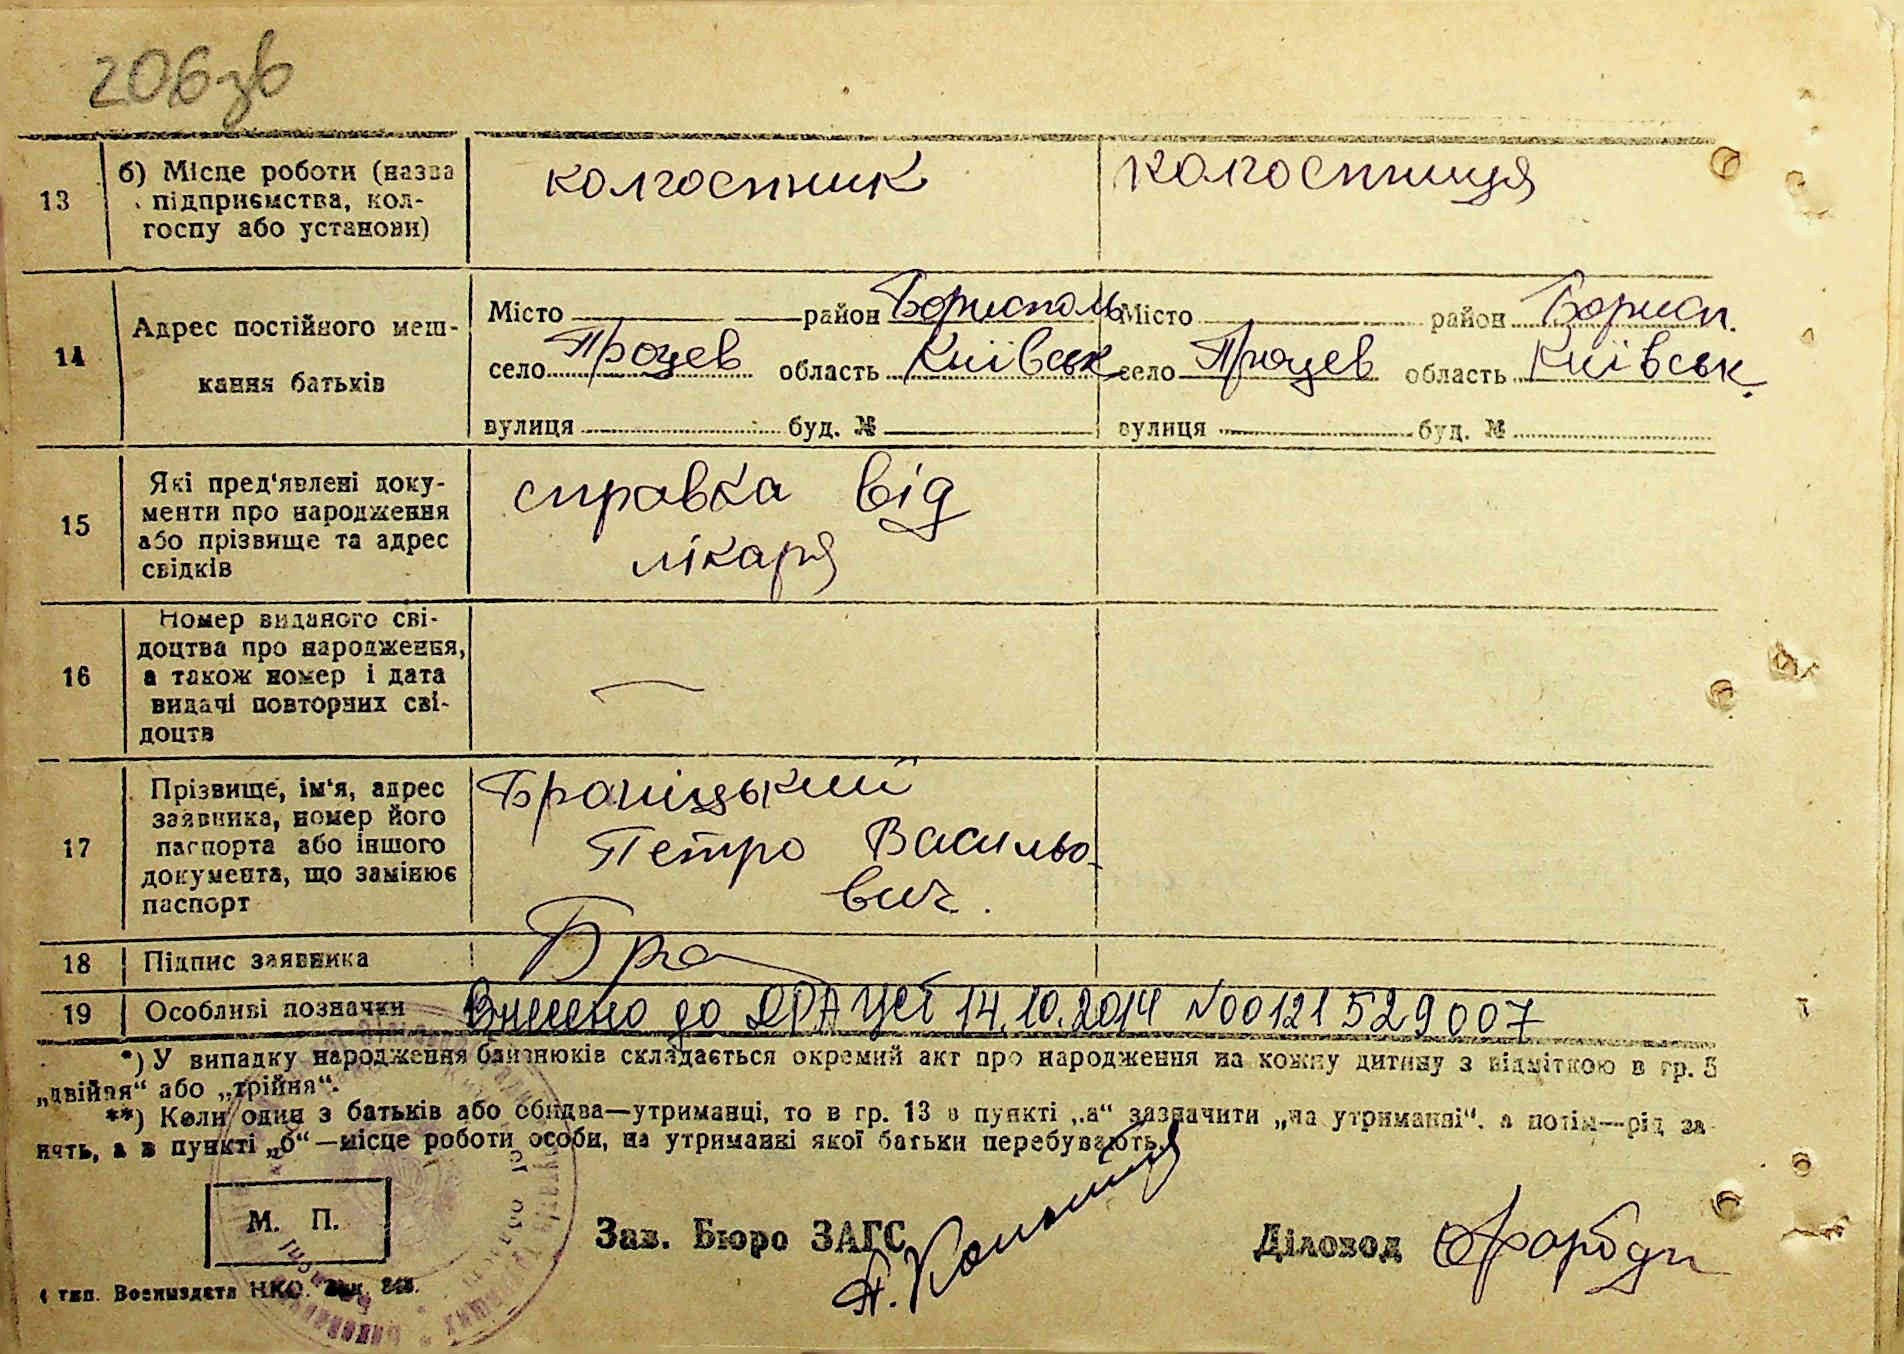 206зв
13
б) Місце роботи (назва
підприємства, кол-
госпу або установи)
колгоспник
колгоспниця
14
Адрес постійного меш-
кання батьків
Місто район Бориспіль
село Процев область Київськ
вулиця буд. №
Місто район Борисп.
село Процев область Київськ.
вулиця буд. №
15
Які пред'явлені доку-
менти про народження
або прізвище та адрес
свідків
справка від
лікаря
16
Номер виданого сві-
доцтва про народження,
а також номер і дата
видачі повторних сві-
доцтв
—
17
Прізвище, ім'я, адрес
заявника, номер його
паспорта або іншого
документа, що замінює
паспорт
Браніцький
Петро Васильо-
вич.
18
Підпис заявника
Бра
19
Особливі позначки
Внесено до ДРАЦСГ 14.10.2014 №00121529007
*) У випадку народження близнюків складається окремий акт про народження на кожну дитину з відміткою в гр. 5
„двійня“ або „трійня“.
**) Коли один з батьків або обидва—утриманці, то в гр. 13 в пункті „а“ зазначити „на утриманні“, а потім—рід за-
нять, а в пункті „б“—місце роботи особи, на утриманні якої батьки перебувають.
М. П.
Зав. Бюро ЗАГС
Діловод
тип. Воениздата НКО. Зак.